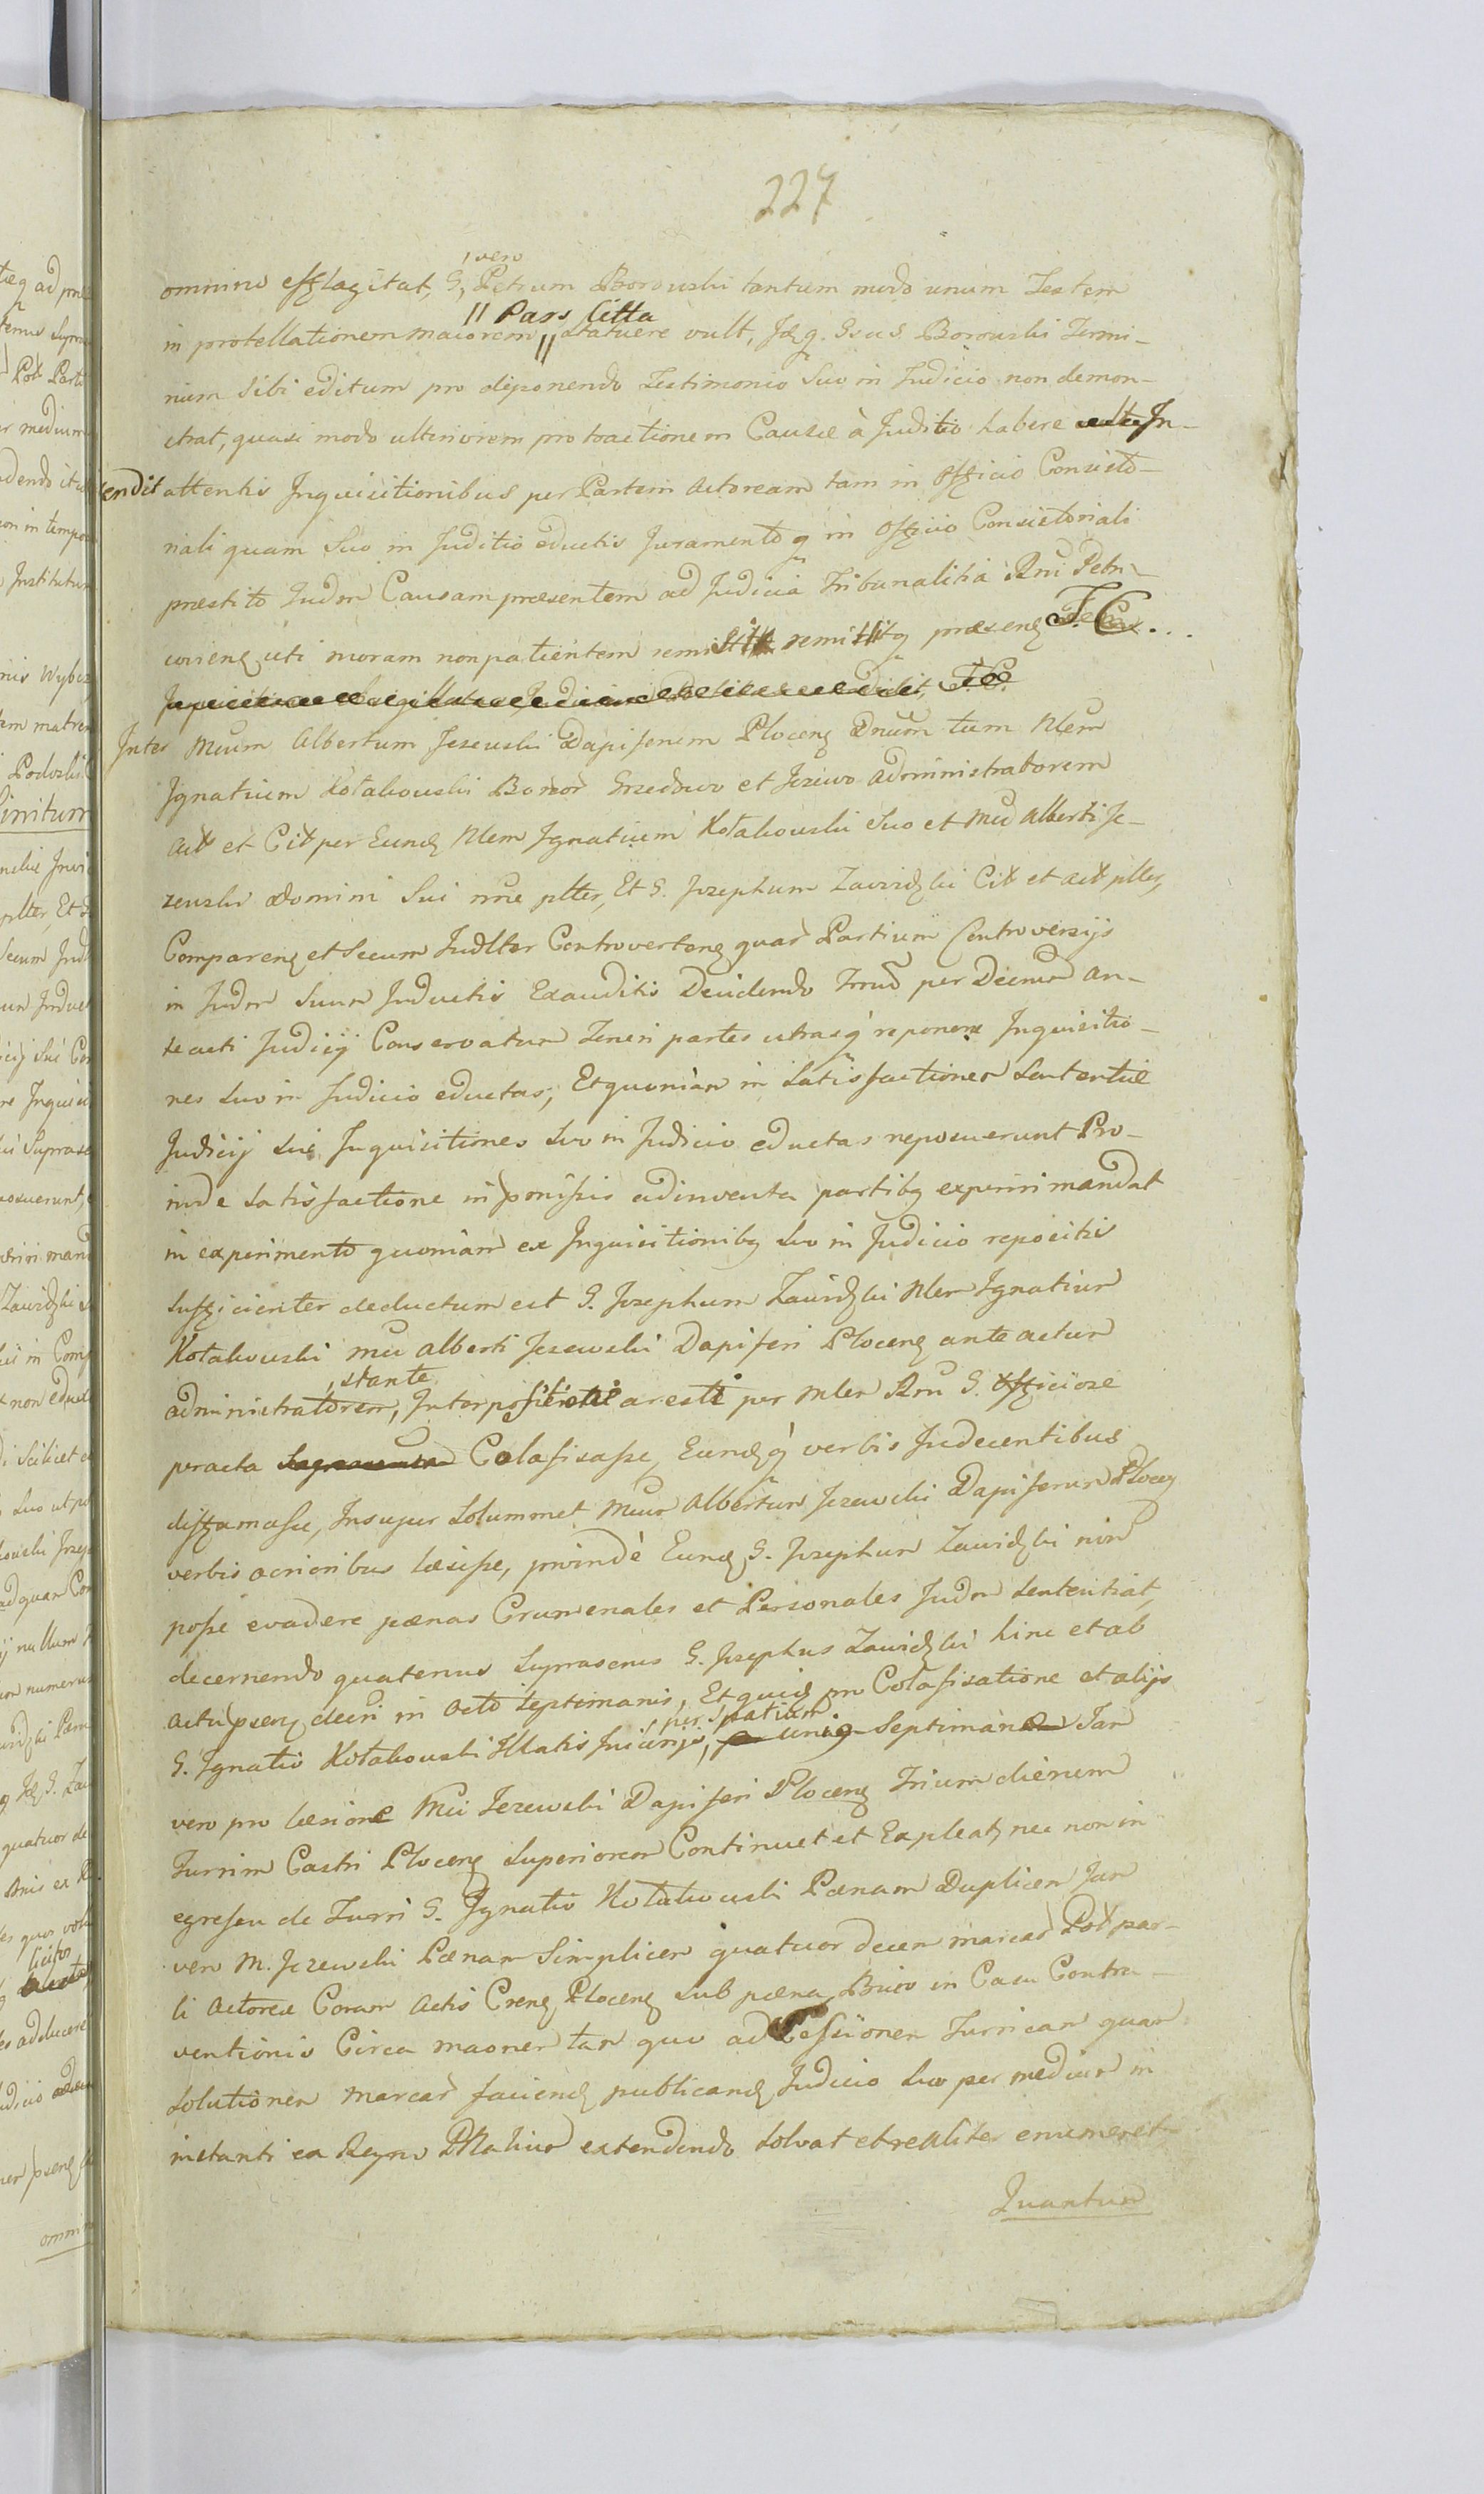 227
omnino efflagitat, G, vero Petrum Borowski tantum modo unum Testem
in protellationem maiorem // Pars Citta // statuere vult, Idq. Gsus Borowski Termi-
num Sibi editum pro deponendo Testimonio Suo in Judicio non demon-
strat, quasi modo ulteriorem protractionem Causæ à Juditio habere In-
tendit attentis Inquisitionibus per Partem Actoream tam in Officio Consisto-
riali quam Suo in Juditio eductis Juramentoq in Officio Consistoriali
præstito Judm Causam præsentem ad Judicia Tribunalitia Rni Petri-
corieng uti moram non patientem remittitq præseng T. C...
Inter Mcum Albertum Jezewski Dapiferum Ploceng Dnum tum Nlem
Ignatium Kołakowski Bonor Grzedowo et Jezewo Administratorem
Act et Cit per Eund Nlem Ignatium Kołakowski Suo et Mci Alberti Je-
zewski Domini Sui nne plter, Et G. Josephum Zawidzki Cit et Act plter,
Compareng et Secum Judlter Controverteng quar Partium Controversijs
in Judm Suum Inductis Exauditis Decidendo Trnd per Decretu An-
teacti Judicij Conservatur Teneri partes utrasq reponere Inquisitio-
nes Suo in Judicio eductas; Et quoniam in Satisfactionem Sententiæ
Judicij Sui Inquisitiones Suo in Judicio eductas reposuerunt Pro-
inde Satisfactione in pmissis adinventa partibq experiri mandat
in experimento quoniam ex Inquisitionibq Suo in Judicio repositis
Sufficienter deductum est G. Josephum Zawidzki Nlem Ignatium
Kołakowski Mci Alberti Jezewski Dapiferi Ploceng ante actum
administratorem, stante Interpositione aresti per Mlem Rni G. Officiose
peracta Colafisasse, Eundq verbis Indecentibus
diffamasse, Insuper Solummet Mcum Albertum Jezewski Dapiferum Ploceng
verbis acrioribus læsisse, proindè Eund G. Josephum Zawidzki non
posse evadere pænas Crumenales et Personales Judm Sententiat,
decernendo quatenus Suprascrus G. Josephus Zawidzki hinc et ab
actu pseng decri in Acto Septimanis, Et quid pro Colafisatione et alijs
G. Ignatio Kołakowski Illatis Injurijs, per spatium uniq Septimanæ Iam
vero pro læsione Mci Jezewski Dapiferi Ploceng Trium dierum
Turrim Castri Ploceng Superiorem Continuet et Expleat, nec non in
egressu de Turri G. Ignatio Kołakowski Pænam Duplicem Iam
vero M. Jezewski Pænam Simplicem quatuor decem marcar Pol par-
ti Actoreæ Coram Actis Creng Ploceng Sub pæna Bnioo in Casu Contra-
ventionis Circa maoner tam quo ad Cessionem Turricam quam
Solutionem marcar faciend publicand Judicio Suo per medium in
instanti ex Regno extendendo Solvat et realiter enumeret
Quantum